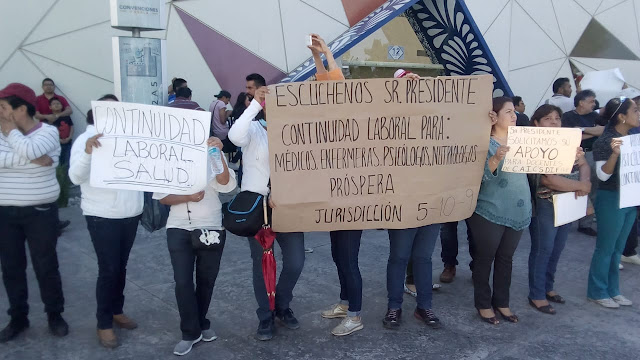 CONVENCIONES
CONTINUIDAD
LABORAL
SALUD
ESCUCHENOS SR. PRESIDENTE
CONTINUIDAD LABORAL PARA:
MÉDICOS, ENFERMERAS, PSICÓLOGAS, NUTRIÓLOGAS
PRÓSPERA
JURISDICCIÓN 5-10-9
SR. PRESIDENTE
SOLICITAMOS SU
APOYO